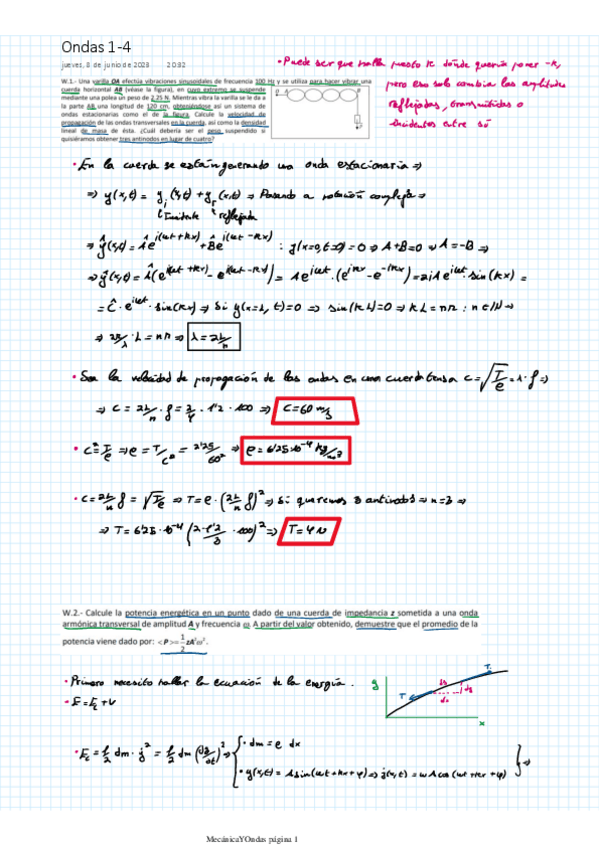 Ondas 1-4
jueves, 8 de junio de 2023 20:32
• Puede ser que halla puesto k donde quería poner -k,
pero eso solo cambia las amplitudes
reflejadas, transmitidas o
incidentes entre sí
W.1.- Una varilla OA efectúa vibraciones sinusoidales de frecuencia 100 Hz y se utiliza para hacer vibrar una
cuerda horizontal AB (véase la figura), en cuyo extremo se suspende
mediante una polea un peso de 2.25 N. Mientras vibra la varilla se le da a
la parte AB una longitud de 120 cm, obteniéndose así un sistema de
ondas estacionarias como el de la figura. Calcule la velocidad de
propagación de las ondas transversales en la cuerda, así como la densidad
lineal de masa de ésta. ¿Cuál debería ser el peso suspendido si
quisiéramos obtener tres antinodos en lugar de cuatro?
• En la cuerda se están generando una onda estacionaria ⇒
⇒ y(x,t) = y_i(x,t) + y_r(x,t) ⇒ Pasando a notación compleja ⇒
Incidente reflejada
⇒ ŷ(x,t) = Âe^{i(ωt+kx)} + B̂e^{i(ωt-kx)} : y(x=0,t=0)=0 ⇒ A+B=0 ⇒ A=-B ⇒
⇒ ŷ(x,t) = Â(e^{i(ωt+kx)} - e^{i(ωt-kx)}) = Ae^{iωt}·(e^{ikx} - e^{-ikx}) = 2iAe^{iωt}·sin(kx) =
= Ĉ·e^{iωt}·sin(kx) ⇒ Si y(x=L,t)=0 ⇒ sin(kL)=0 ⇒ kL=nπ : n∈ℕ ⇒
⇒ 2π/λ · L = nπ ⇒ λ = 2L/n
• Sea la velocidad de propagación de las ondas en una cuerda tensa c = √(T/ρ) = λ·f ⇒
⇒ c = 2L/n · f = 2/4 · 1'2 · 100 ⇒ C = 60 m/s
• c² = T/ρ ⇒ ρ = T/c² = 2'25/60² ⇒ ρ = 6'25·10⁻⁴ kg/m³
• c = 2L/n f = √(T/ρ) ⇒ T = ρ·(2L/n f)² ⇒ Si queremos 3 antinodos ⇒ n=3 ⇒
⇒ T = 6'25·10⁻⁴ (2·1'2/3 · 100)² ⇒ T = 4N
W.2.- Calcule la potencia energética en un punto dado de una cuerda de impedancia z sometida a una onda
armónica transversal de amplitud A y frecuencia ω. A partir del valor obtenido, demuestre que el promedio de la
potencia viene dado por: <P>= 1/2 zA²ω².
• Primero necesito hallar la ecuación de la energía.
• E = E_c + V
y T T ds dy dx x
• E_c = 1/2 dm·ẏ² = 1/2 dm (dy/dt)² ⇒ { • dm = ρ dx
• y(x,t) = A sin(ωt+kx+φ) ⇒ ẏ(x,t) = ωA cos(ωt+kx+φ) } ⇒
MecánicaYOndas página 1